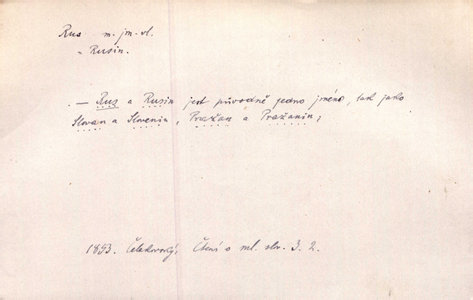 Rus m. jm. vl.
= Rusin.
. — Rus a Rusin jest původně jedno jméno, tak jako
Slovan a Slovenin, Pražan a Pražanin;
1853. Čelakovský, Čtení o ml. slov. 3. 2.